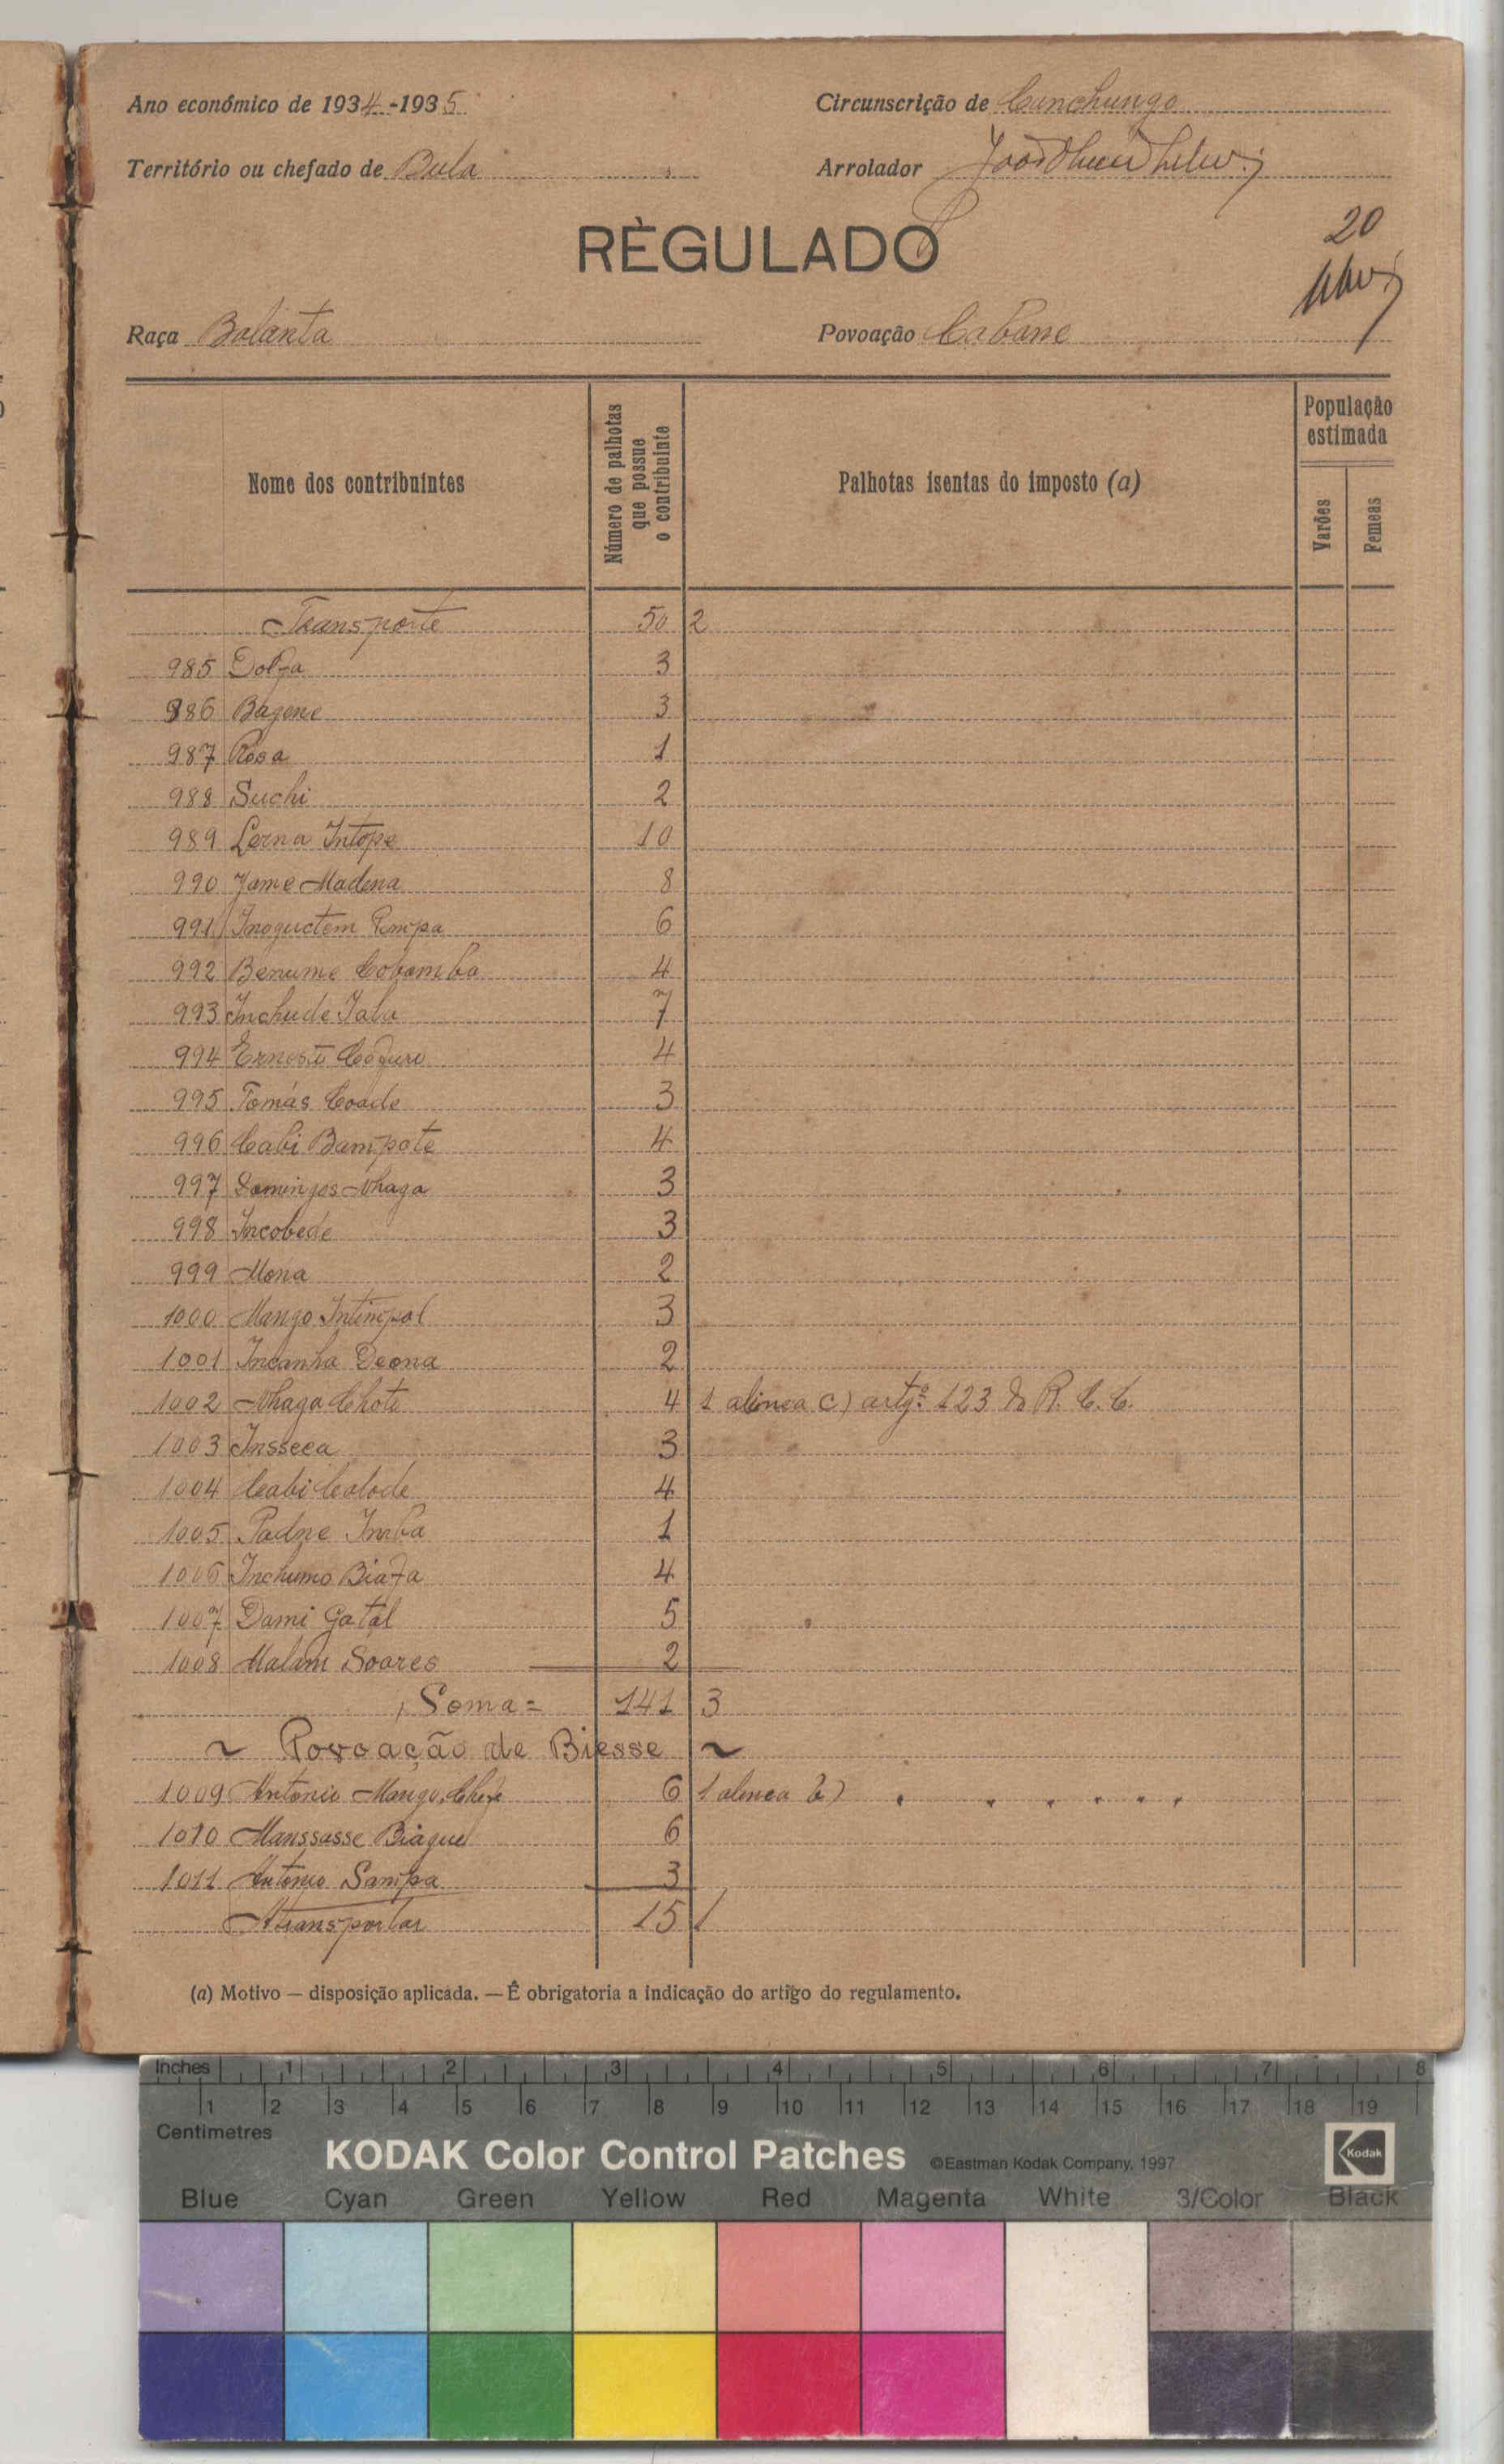 Ano económico de 1934-1935
Circunscrição de Canchungo
Território ou chefado de Bula
Arrolador
RÈGULADO
20
Raça Balanta
Povoação Cabane
Nome dos contribuintes
Número de palhotas que possue o contribuinte
Palhotas isentas do imposto (a)
População estimada
Varões
Femeas
Transporte 50 2
985 Dolfa 3
986 Bagene 3
987 Rosa 1
988 Suchi 2
989 Lerna Intope 10
990 Jame Madena 8
991 Inoguctem Pempa 6
992 Benume Cobomba 4
993 Inchude Iala 7
994 Ernesto 4
995 Tomás Coade 3
996 Cabi Bampote 4
997 Domingos Nhaga 3
998 Incobede 3
999 Mona 2
1000 Mango Intimpol 3
1001 Incanha Deona 2
1002 Nhaga Chote 4 1 alinea c) artgº 123 do R. C. C.
1003 Insseca 3
1004 Cabi Calode 4
1005 Padre Imba 1
1006 Inchumo Biafa 4
1007 Dami Gatal 5
1008 Malam Soares 2
Soma= 141 3
~ Povoação de Biesse ~
1009 Antonio Mango, Chefe 6 1 alinea b) " " " " " "
1010 Manssasse Biague 6
1011 Antonio Sampa 3
A transportar 15 1
(a) Motivo — disposição aplicada. — É obrigatoria a indicação do artigo do regulamento.
Inches 1 2 3 4 5 6 7 8
1 2 3 4 5 6 7 8 9 10 11 12 13 14 15 16 17 18 19
Centimetres
KODAK Color Control Patches ©Eastman Kodak Company, 1997 Kodak
Blue Cyan Green Yellow Red Magenta White 3/Color Black